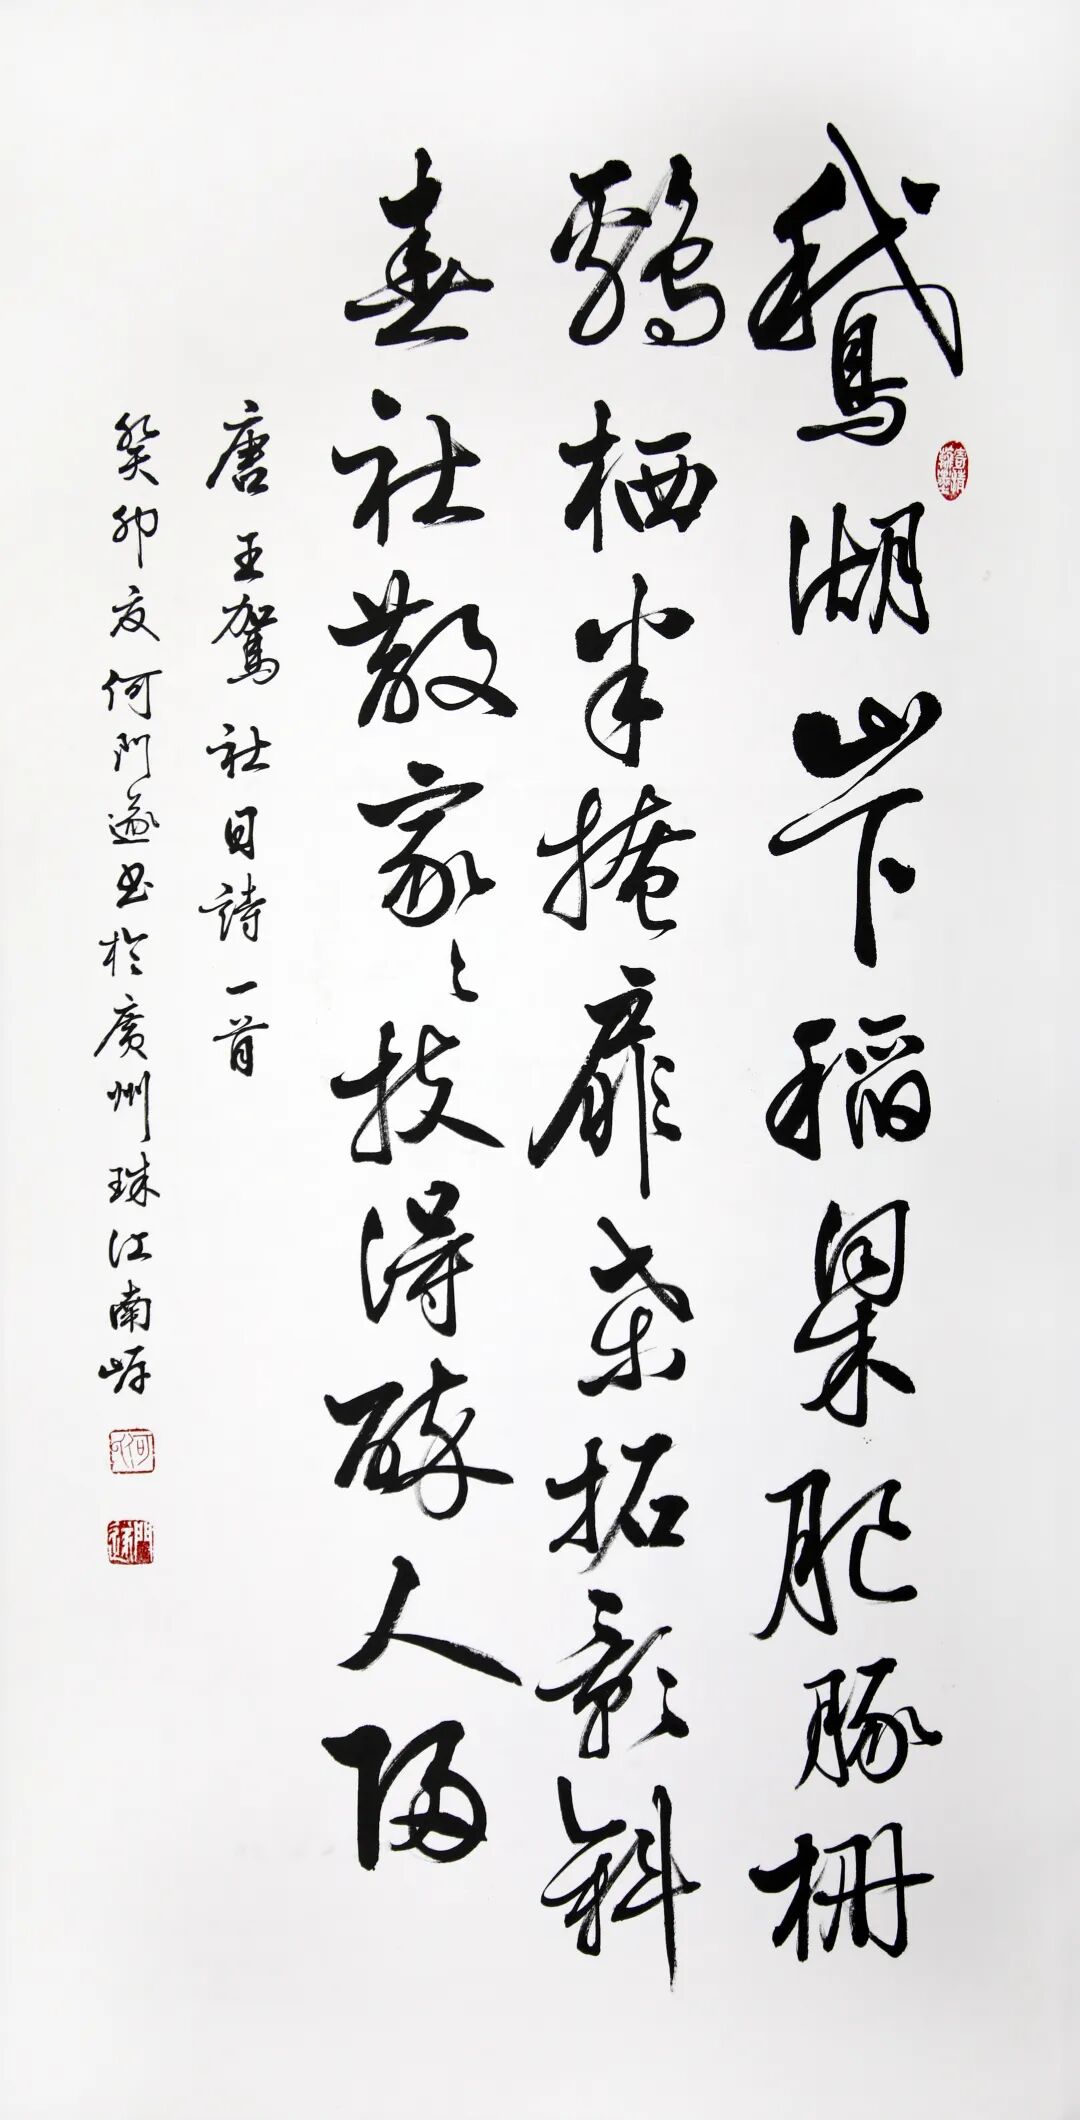 鵝湖山下稻粱肥豚柵
鷄栖半掩扉桑柘影斜
春社散家〻扶得醉人歸
唐王駕社日詩一首
癸卯夏何門遂书於廣州珠江南岸
寄情翰墨
門遂